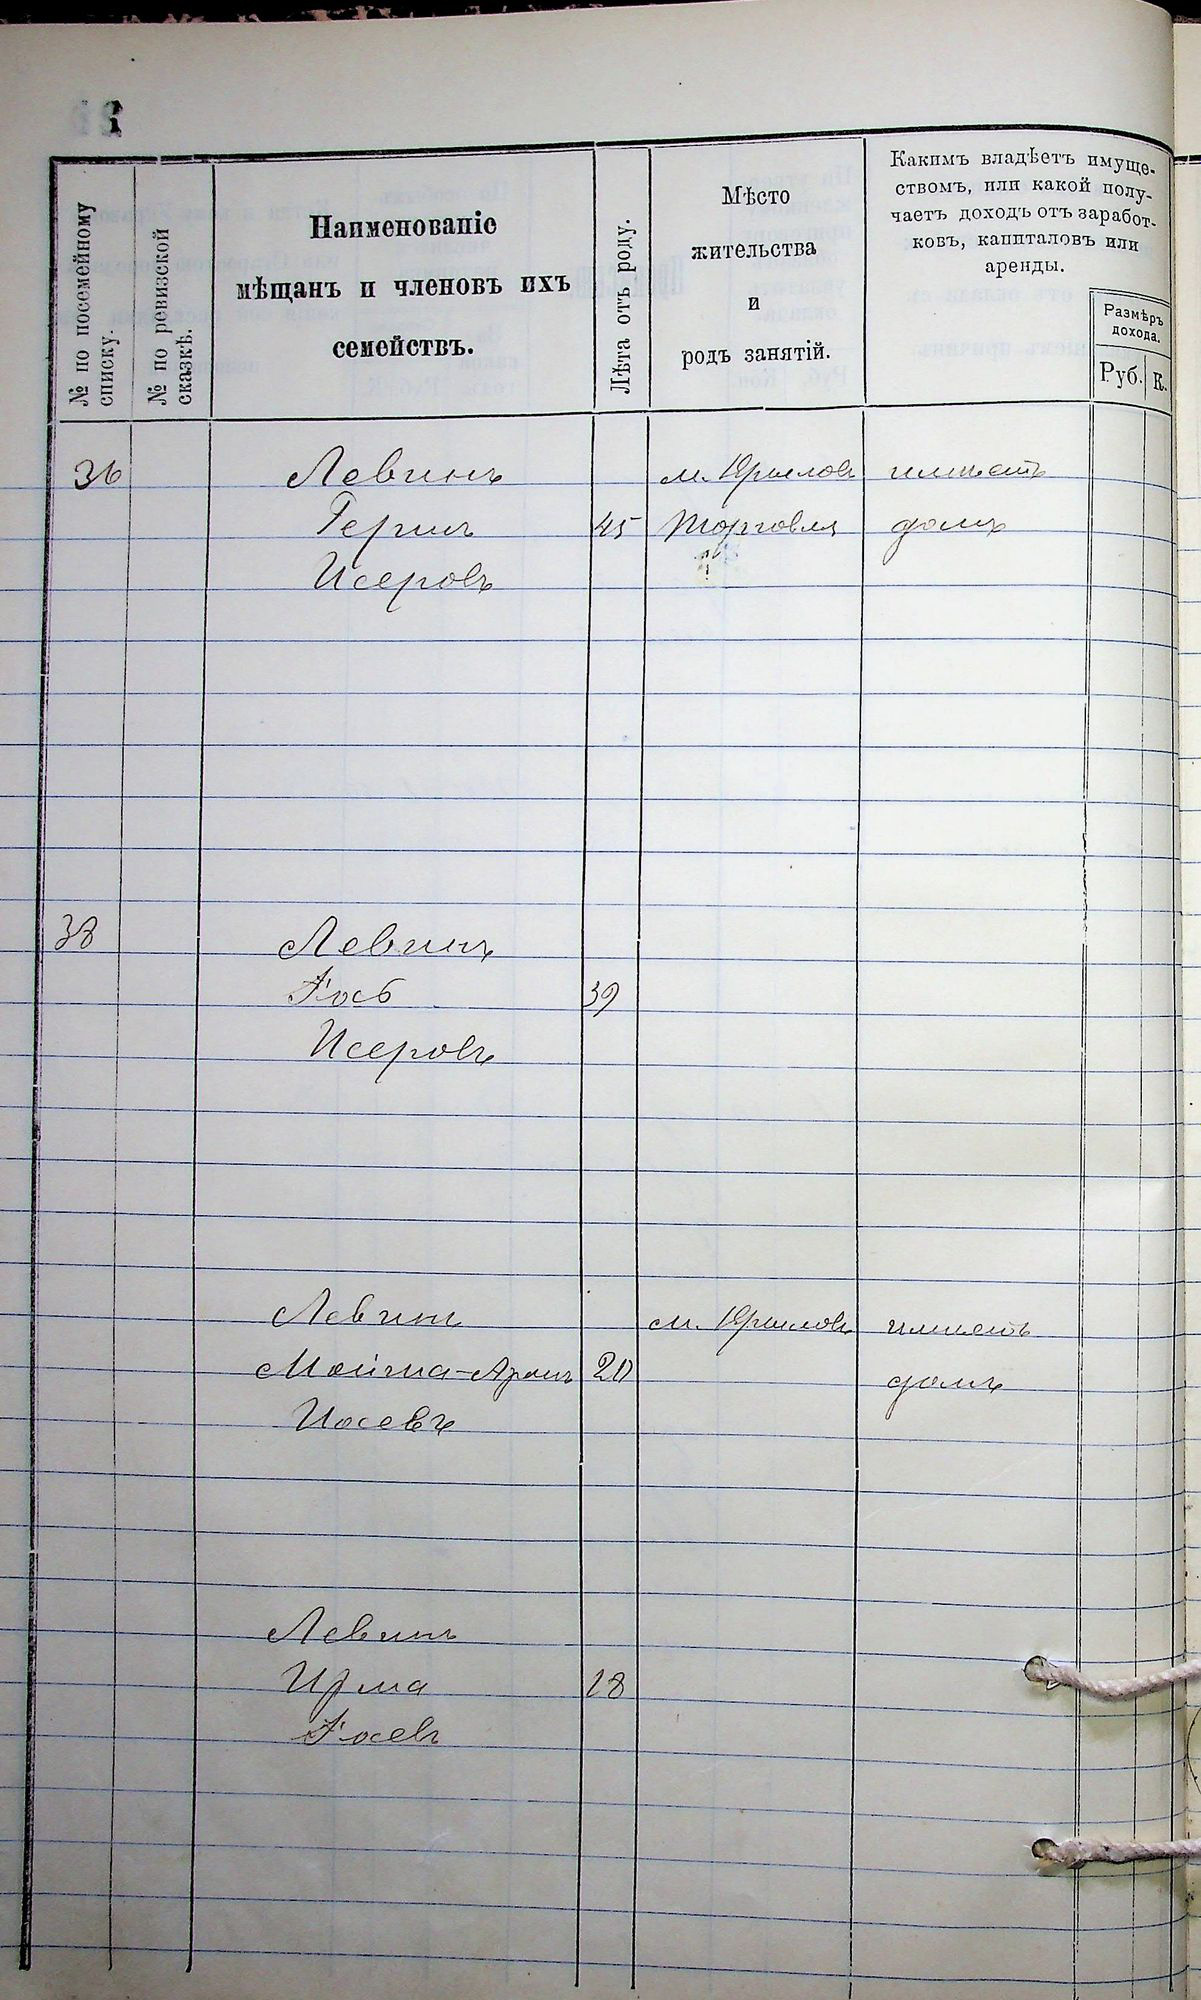 № по посемейному
списку.
№ по ревизской
сказкѣ.
Наименованіе
мѣщанъ и членовъ ихъ
семействъ.
Лѣта отъ роду.
Мѣсто
жительства
и
родъ занятій.
Какимъ владѣетъ имуще-
ствомъ, или какой полу-
чаетъ доходъ отъ заработ-
ковъ, капиталовъ или
аренды.
Размѣръ
дохода.
Руб.
К.
36 Левинъ м. Крыловъ имѣетъ
45 Торговля домъ
Исеровъ
38 Левинъ
39
Исеровъ
Левинъ м. Крыловъ имѣетъ
20 домъ
Іосевъ
Левинъ
18
Іосевъ